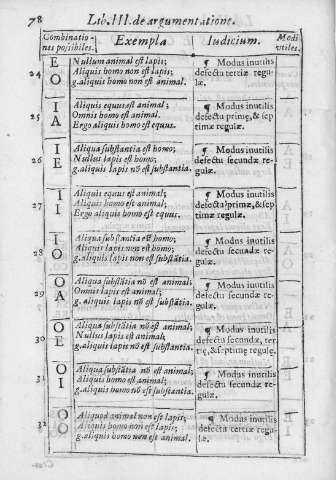 78 Lib. III. de argumentatione.
Combinationes possibiles. Exempla Iudicium. Modi utiles.
24 E O
Nullum animal est lapis;
Aliquis homo non est lapis;
g. aliquis homo non est animal.
¶ Modus inutilis
defectu tertiæ regulæ.
25 I A
Aliquis equus est animal;
Omnis homo est animal.
Ergo aliquis homo est equus.
¶ Modus inutilis
defectu primę, & septimæ regulæ.
26 I E
Aliqua substantia est homo;
Nullus lapis est homo;
g. aliquis lapis nō est substantia.
¶ Modus inutilis
defectu secundæ regulæ.
27 I I
Aliquis equus est animal;
Aliquis homo est animal;
Ergo aliquis homo est equus.
¶ Modus inutilis
defectu primæ, & septimæ regulæ.
28 I O
Aliqua substantia est homo;
Aliquis lapis non est homo;
g. aliquis lapis non est substātia.
¶ Modus inutilis
defectu secundæ regulæ.
29 O A
Aliqua substātia nō est animal;
Omnis lapis est animal;
g. aliquis lapis nō est substātia.
¶ Modus inutilis
defectu secundæ regulæ.
30 O E
Aliqua substātia nō est animal;
Nullus lapis est animal;
g. aliquis lapis nō est substantia.
¶ Modus inutilis
defectu secundæ, tertię, & septimę regulę.
31 O I
Aliqua substātia nō est animal;
Aliquis homo est animal;
g. aliquis homo nō est substantia.
¶ Modus inutilis
defectu secundæ, regulæ.
32 O O
Aliquod animal non est lapis;
Aliquis homo non est lapis;
g. aliquis homo non est animal.
¶ Modus inutilis
defectu tertiæ regulæ.